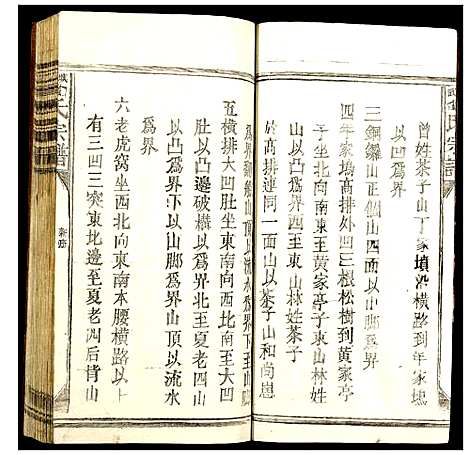 曾姓茶子山丁家墳沿橫路到年家塆
以凹爲界
三銅鑼山正個山四面以山脚爲界
四年家塆高排外凹三根松樹到黃家亭
子坐北向南東至黃家亭子東山林姓
山以凸爲界西至東山林姓茶子
山高排連同二面山以茶子山和尚崽
五橫排大凹肚坐東南向西北南至大凹
肚以凸邊破橫以爲界北至夏老四山
以凸爲界下以山脚山頂以流水
爲界
六老虎窩坐西北向東南本腰橫路以上
有三凹三突東北邊至夏老凋后背山
氏宗譜